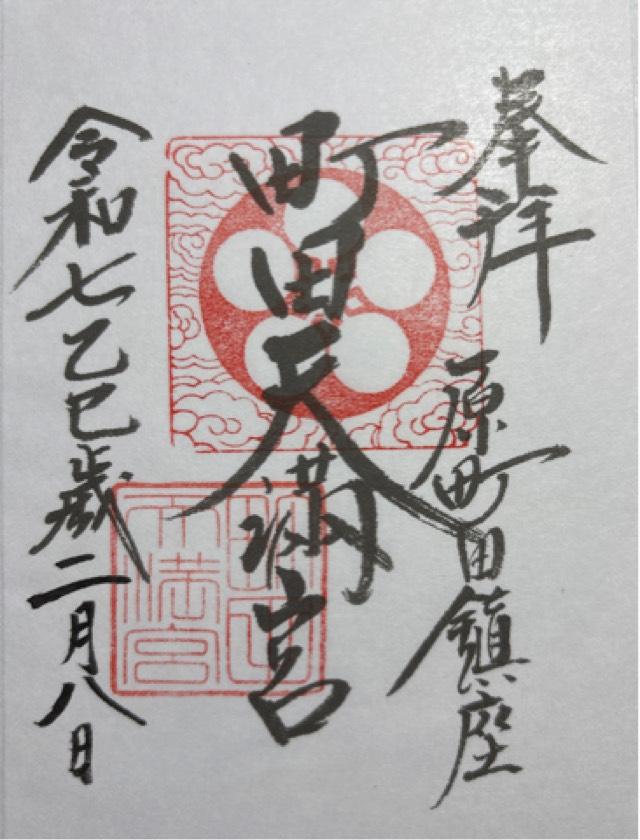 奉拝
原町田鎮座
町田天満宮
令和七乙巳歳二月八日
町田
天満宮